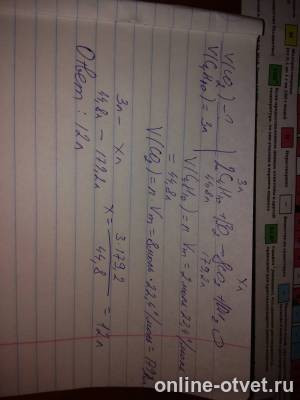 V(CO₂) - ?
V(C₄H₁₀) = 3л
3л        xл
2C₄H₁₀ + 13O₂ → 8CO₂ + 10H₂O
44,8л        179,2л
V(C₄H₁₀) = n · Vm = 2моль · 22,4 л/моль
= 44,8л
V(CO₂) = n · Vm = 8моль · 22,4 л/моль = 179,2л
3л - xл
44,8л - 179,2л
x = 3·179,2 / 44,8 = 12л
Ответ: 12л
online-otvet.ru